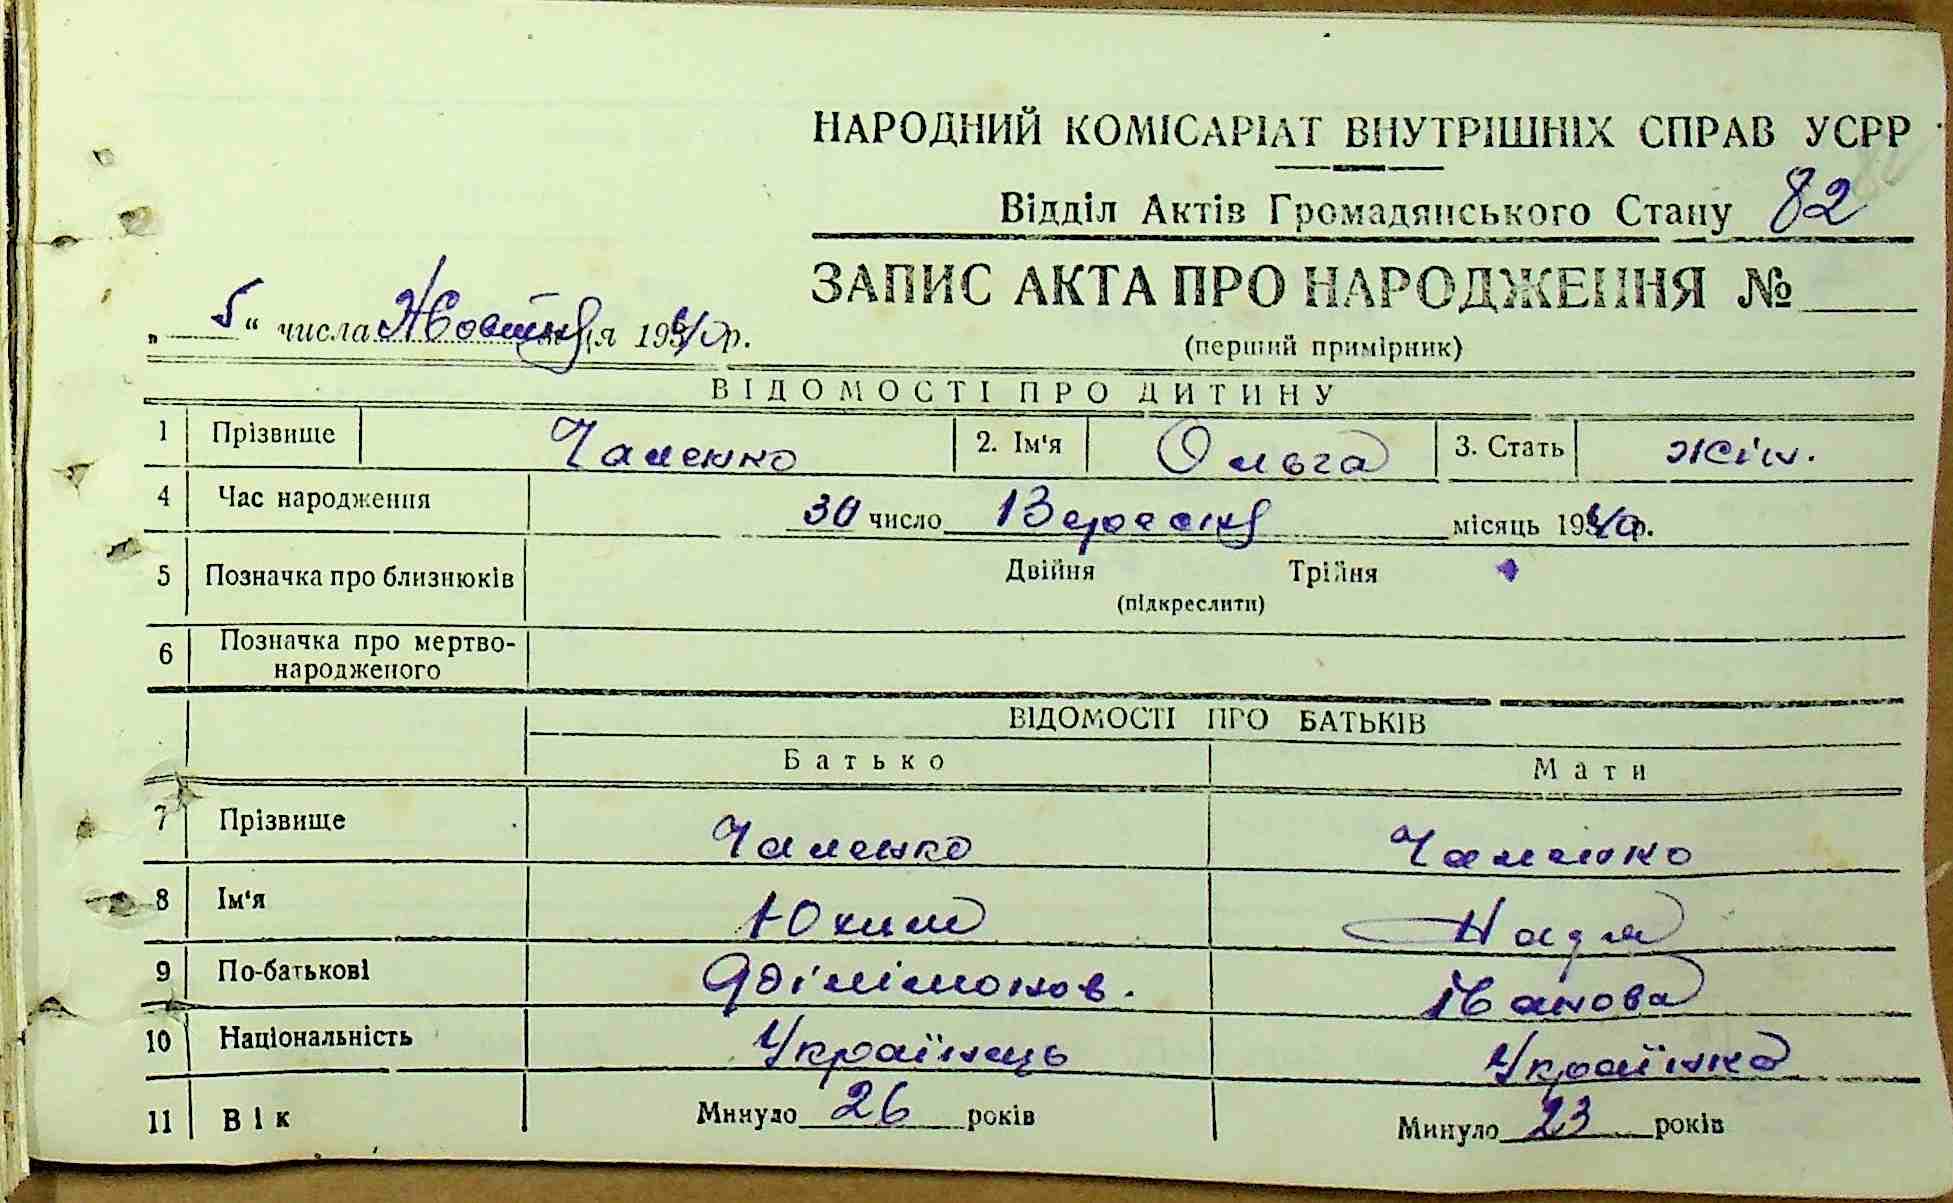 НАРОДНИЙ КОМІСАРІАТ ВНУТРІШНІХ СПРАВ УСРР
Відділ Актів Громадянського Стану 82
ЗАПИС АКТА ПРО НАРОДЖЕННЯ №
„ 5 “ числа Жовтня ця 1940 р.
(перший примірник)
ВІДОМОСТІ ПРО ДИТИНУ
1 Прізвище Чаленко 2. Ім'я Ольга 3. Стать жін.
4 Час народження 30 число Вересня місяць 1940 р.
5 Позначка про близнюків Двійня Трійня
(підкреслити)
6 Позначка про мертво-
народженого
ВІДОМОСТІ ПРО БАТЬКІВ
Батько Мати
7 Прізвище Чаленко Чаленко
8 Ім'я Юхим Надя
9 По-батькові Іванова
10 Національність Українець Українка
11 Вік Минуло 26 років Минуло 23 років